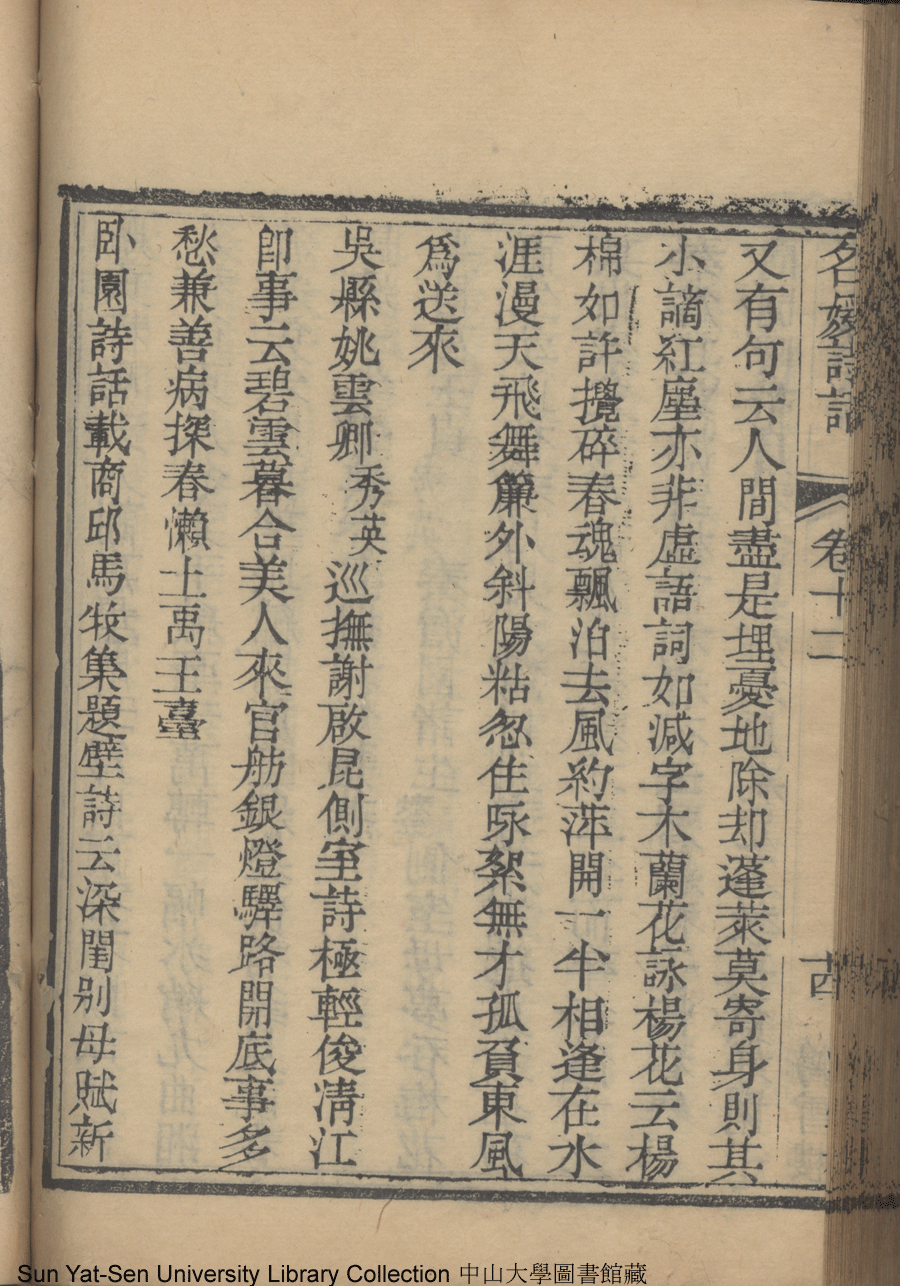 名媛詩話 卷十二 十四
又有句云人間盡是埋憂地除却蓬萊莫寄身則其
小謫紅塵亦非虛語詞如減字木蘭花詠楊花云楊
棉如許攪碎春魂飄泊去風約萍開一半相逢在水
涯漫天飛舞簾外斜陽粘忽住咏絮無才孤負東風
爲送來
吳縣姚雲卿秀英巡撫謝啟昆側室詩極輕俊淸江
卽事云碧雲暮合美人來官舫銀燈驛路開底事多
愁兼善病探春懶上禹王臺
卧園詩話載商邱馬牧集題壁詩云深閨别母賦新
Sun Yat-Sen University Library Collection 中山大學圖書館藏